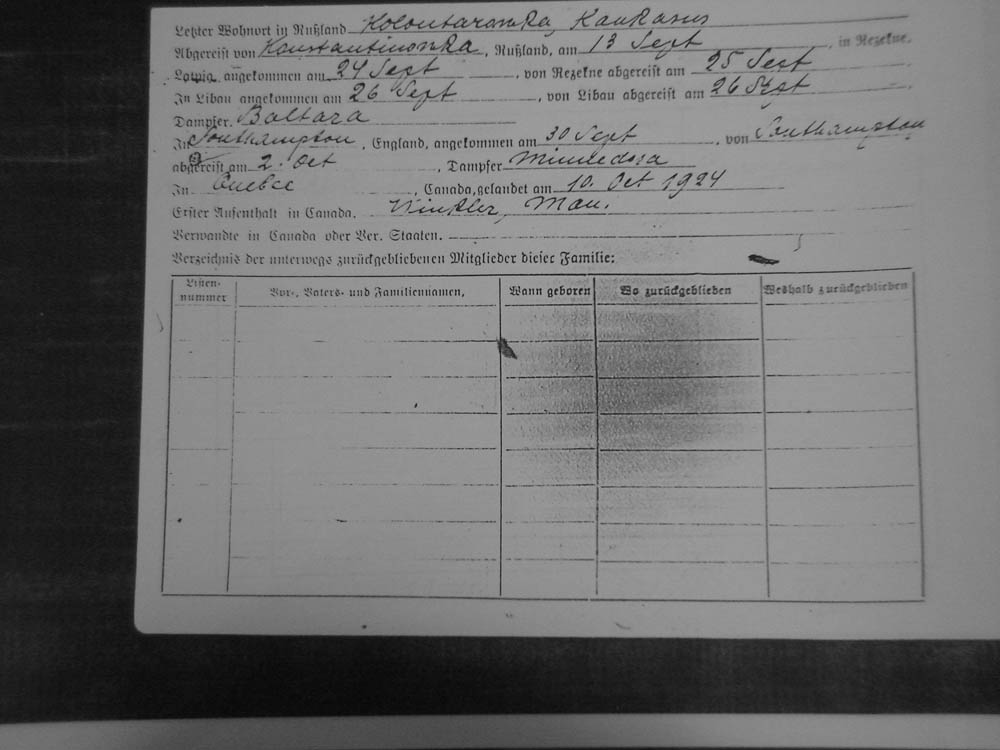 Letzter Wohnort in Rußland Kolontarowka, Kaukasus
Abgereist von Konstantinowka, Rußland, am 13 Sept, in Rezekne,
Latvia, angekommen am 24 Sept, von Rezekne abgereist am 25 Sept
In Libau angekommen am 26 Sept, von Libau abgereist am 26 Sept
Dampfer. Baltara
In Southampton, England, angekommen am 30 Sept, von Southampton
abgereist am 2. Oct, Dampfer Minnedosa
In Quebec, Canada, gelandet am 10. Oct 1924
Erster Aufenthalt in Canada. Winkler, Man.
Verwandte in Canada oder Ver. Staaten.
Verzeichnis der unterwegs zurückgebliebenen Mitglieder dieser Familie:
Listen-nummer Vor-, Vaters- und Familiennamen, Wann geboren Wo zurückgeblieben Weshalb zurückgeblieben